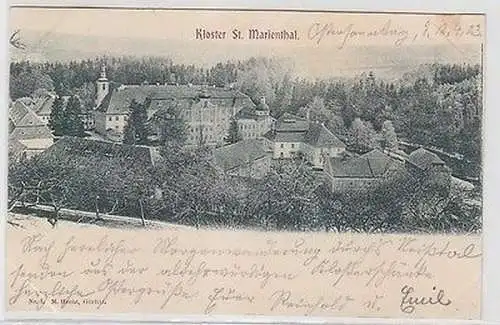 Kloster St. Marienthal.
Ostersonntag,
Nach herrlicher Morgenwanderung durch's Neißtal
senden aus der altehrwürdigen Klosterschänke
herzliche Ostergrüße Euer Reinhold u. Emil
No. 4. M. Heinz, Görlitz.